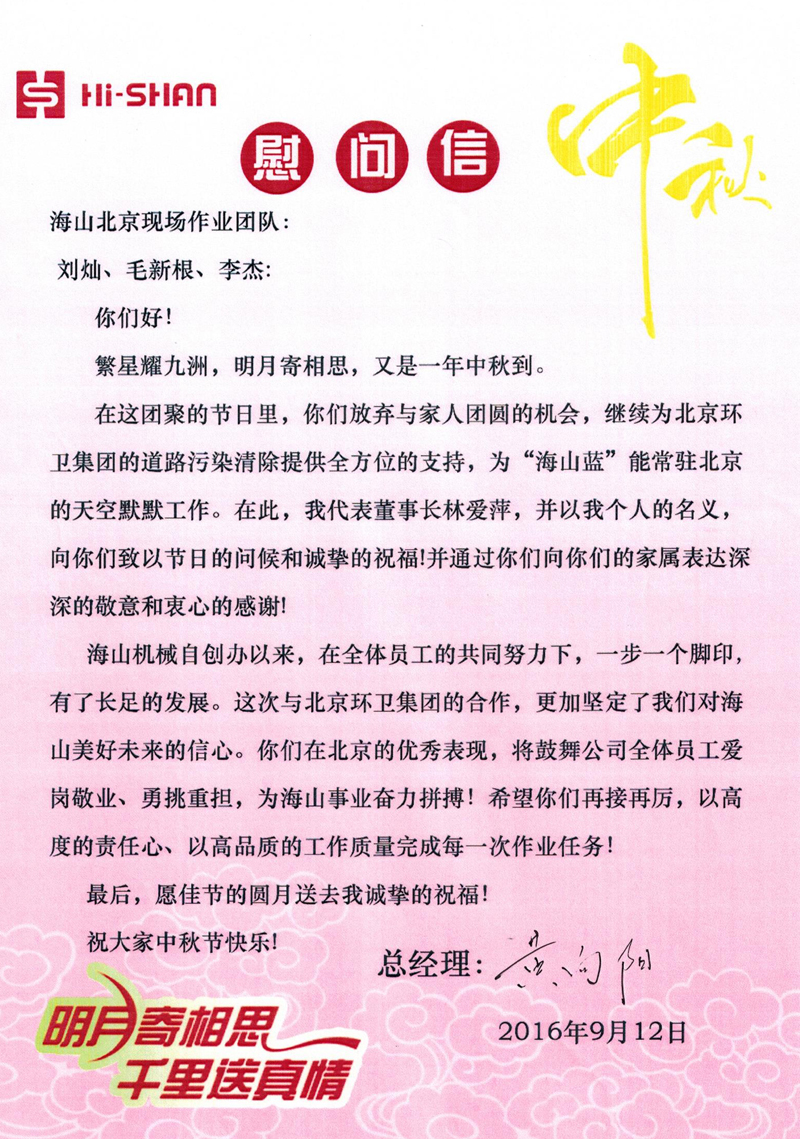 HI-SHAN
中秋
慰问信
海山北京现场作业团队：
刘灿、毛新根、李杰：
你们好！
繁星耀九洲，明月寄相思，又是一年中秋到。
在这团聚的节日里，你们放弃与家人团圆的机会，继续为北京环
卫集团的道路污染清除提供全方位的支持，为“海山蓝”能常驻北京
的天空默默工作。在此，我代表董事长林爱萍，并以我个人的名义，
向你们致以节日的问候和诚挚的祝福!并通过你们向你们的家属表达深
深的敬意和衷心的感谢!
海山机械自创办以来，在全体员工的共同努力下，一步一个脚印，
有了长足的发展。这次与北京环卫集团的合作，更加坚定了我们对海
山美好未来的信心。你们在北京的优秀表现，将鼓舞公司全体员工爱
岗敬业、勇挑重担，为海山事业奋力拼搏！希望你们再接再厉，以高
度的责任心、以高品质的工作质量完成每一次作业任务！
最后，愿佳节的圆月送去我诚挚的祝福！
祝大家中秋节快乐!
总经理：黄向阳
2016年9月12日
明月寄相思
千里送真情